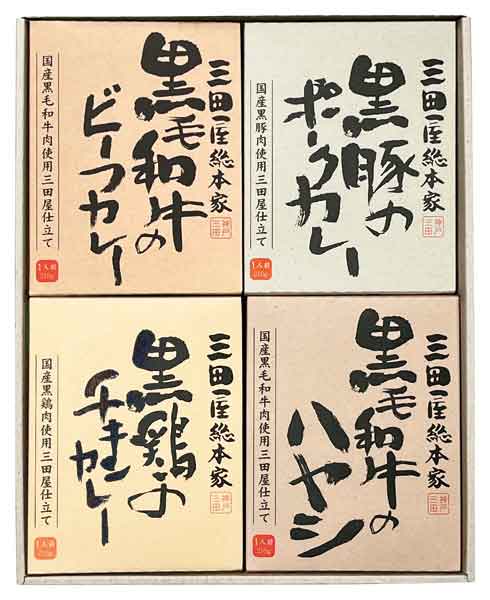 三田屋総本家
黒毛和牛の
ビーフカレー
国産黒毛和牛肉使用三田屋仕立て
神戸
三田
1人前
210g
三田屋総本家
黒豚の
ポークカレー
国産黒豚肉使用三田屋仕立て
神戸
三田
1人前
210g
三田屋総本家
黒鶏の
チキンカレー
国産黒鶏肉使用三田屋仕立て
神戸
三田
1人前
210g
三田屋総本家
黒毛和牛の
ハヤシ
国産黒毛和牛肉使用三田屋仕立て
神戸
三田
1人前
210g